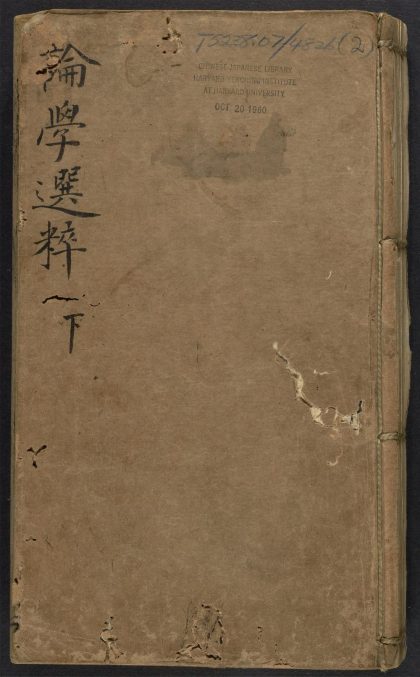 論學選粹
下
T5228.07/4826(2)
CHINESE-JAPANESE LIBRARY
HARVARD-YENCHING INSTITUTE
AT HARVARD UNIVERSITY
OCT 20 1960